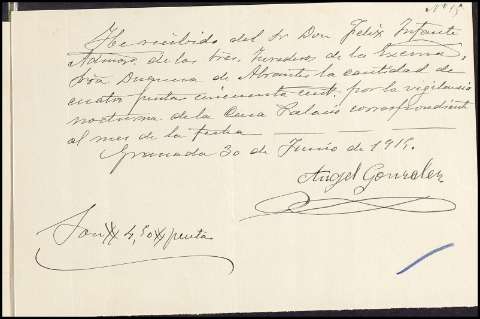 Nº 15
He recibido del Sr Don Felix Infante
Admor. de los Sres. herederos de la Excma.
Sra Duquesa de Abrantes la cantidad de
cuatro pesetas cincuenta cents. por la vigilancia
nocturna de la Casa Palacio correspondiente
al mes de la fecha
Granada 30 de Junio de 1915.
Angel Gonzalez
Son 4,50 pesetas